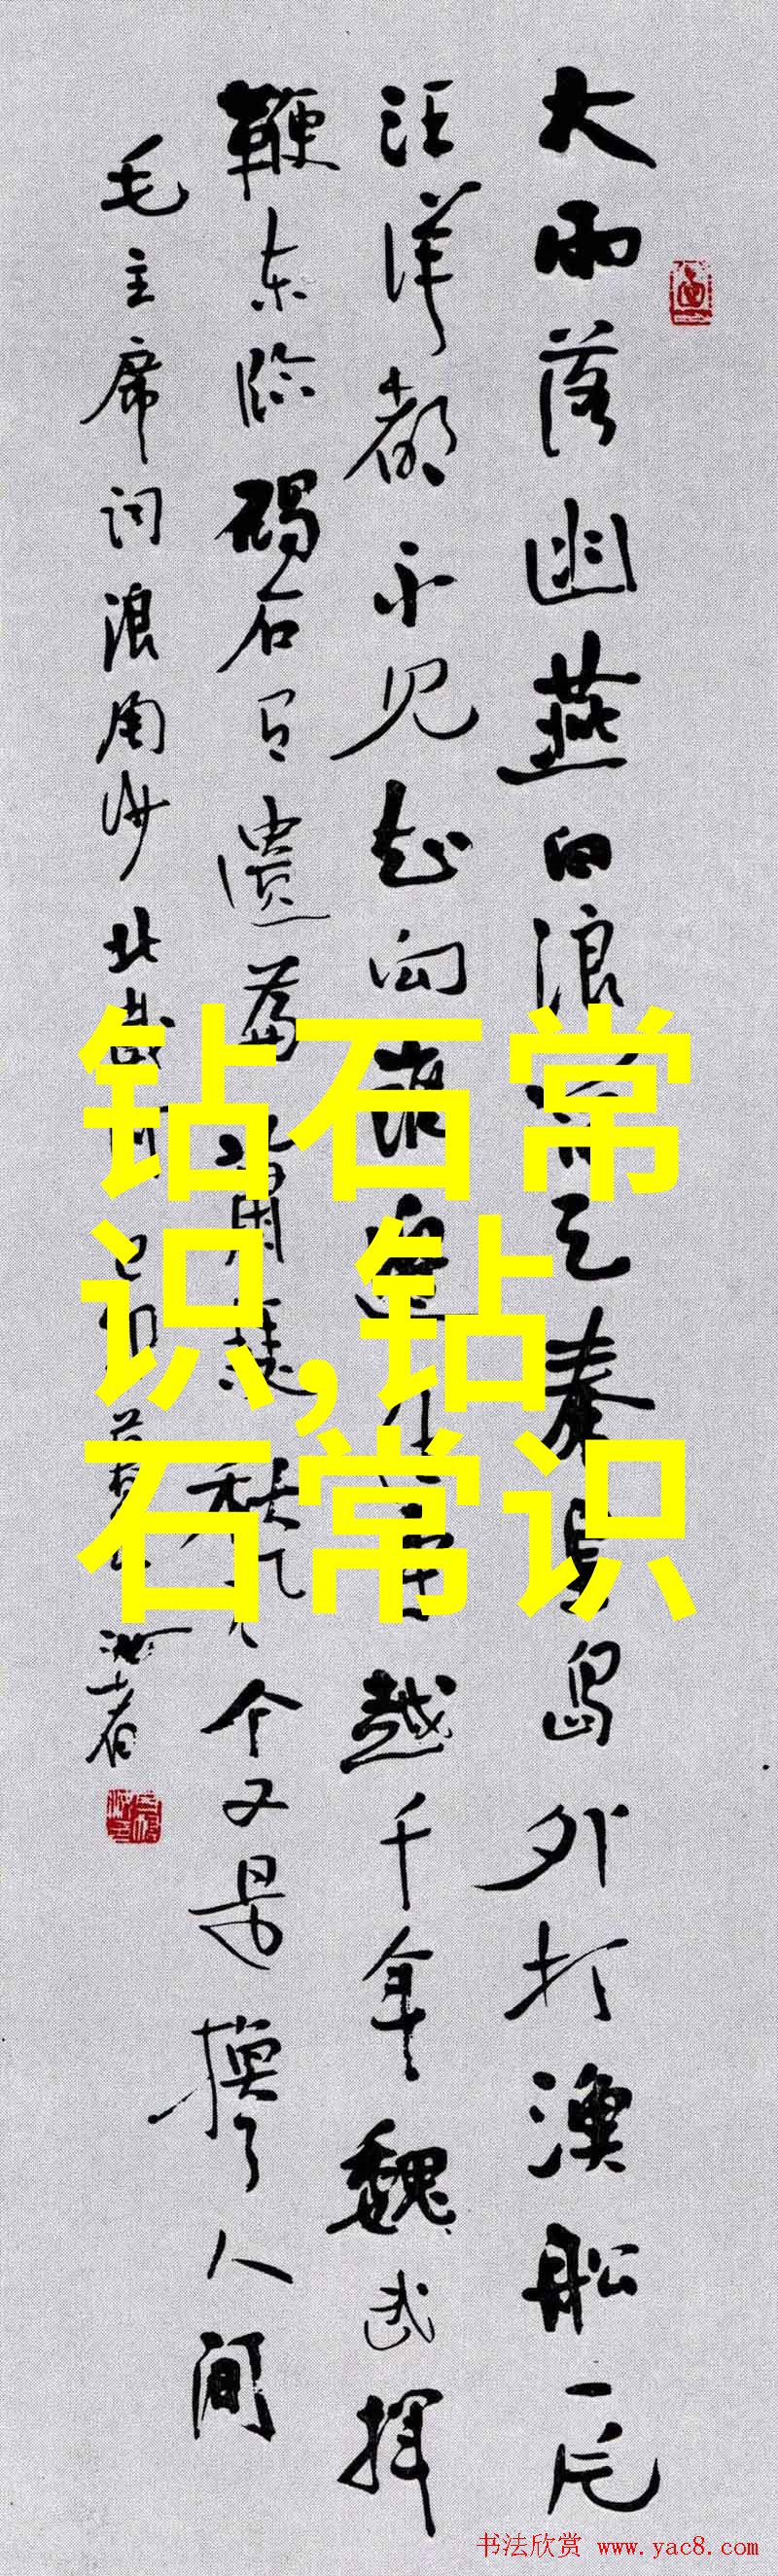 大雨落幽燕白浪滔天秦皇岛外打漁船一片
汪洋都不见知向誰邊往事越千年魏武揮
鞭东临碣石有遗篇萧瑟秋风今又是换了人间
毛主席词浪淘沙北戴河己卯暮春
钻石常
识,钻
石常识
书法欣赏 www.yac8.com